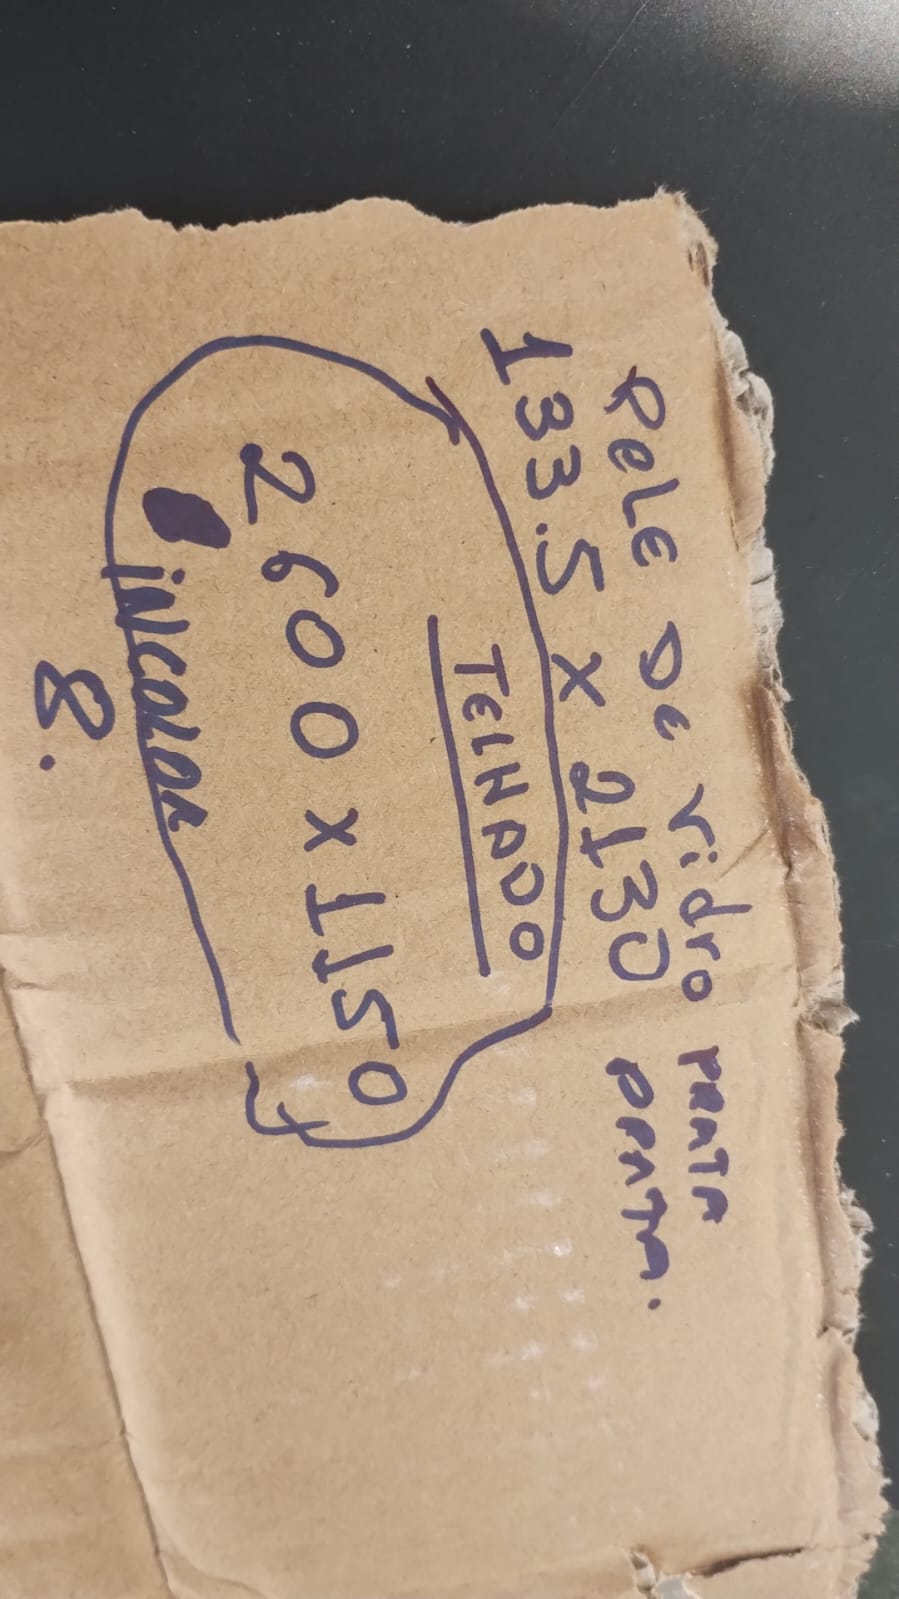 PELE DE Vidro PRATA
133.5 X 2130 PRATA.
TELHADO
2600 x 1150
iNCOLOR
8.